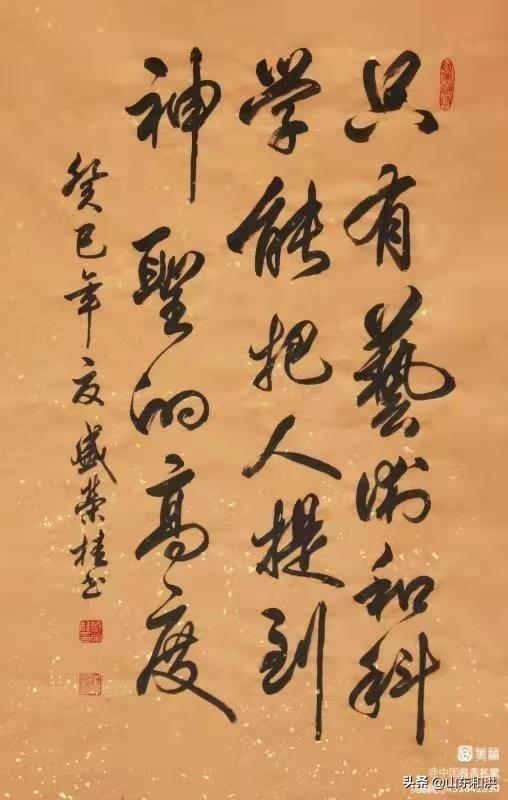 只有藝術和科
學能把人提到
神聖的高度
癸巳年夏盛榮桂书
美篇
@中国名表名家
头条@山东和洪